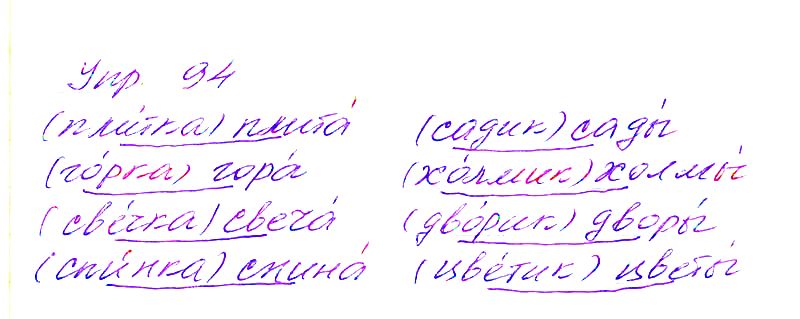 Упр. 94
(пли́тка) плита́
(го́рка) гора́
(све́чка) свеча́
(спи́нка) спина́
(садик) сады́
(хо́лмик) холмы́
(дво́рик) дворы́
(цве́тик) цветы́